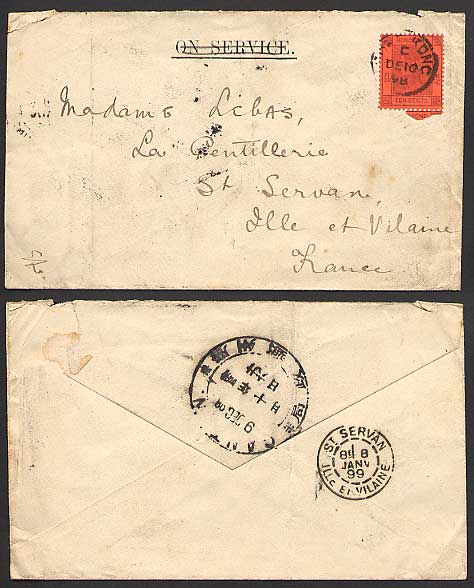 ON SERVICE.
C
DE 10
98
TEN CENTS
Madame Lebas,
La Gentillerie
St Servan,
Ille et Vilaine
France
9 DEC
CANT
ST SERVAN
8E 8
JANV
99
ILLE ET VILAINE